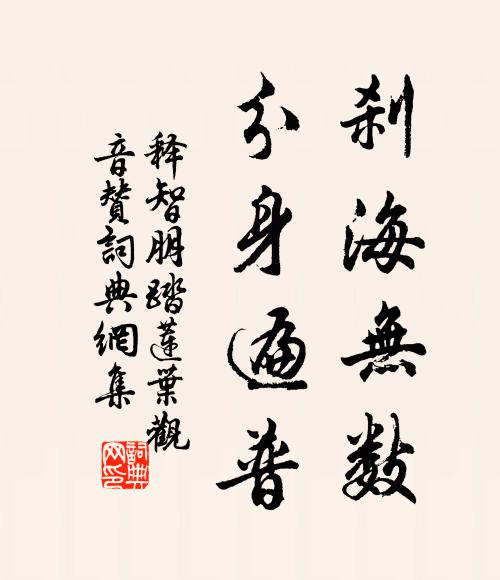 刹海無數
分身遍普
释智朋踏蓮葉觀
音賛詞典網集
詞典网印